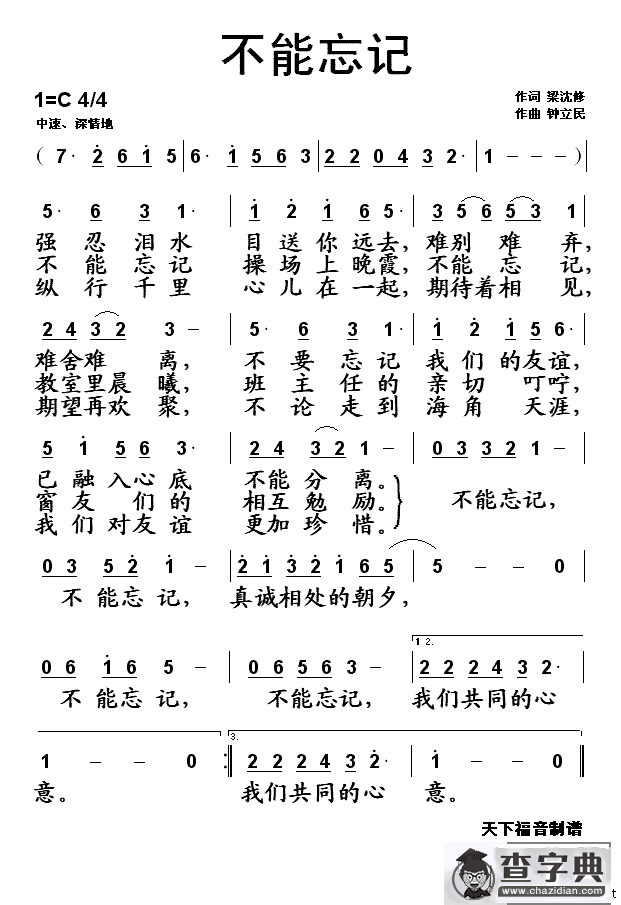 不能忘记
1=C 4/4
作词 梁沈修
中速、深情地
作曲 钟立民
( 7· 2 6 1 5 | 6· 1 5 6 3 | 2 2 0 4 3 2· | 1 – – – )
5· 6 3 1· | 1 2 1 6 5· | 3 5 6 5 3 1 |
强忍泪水 目送你远去, 难别难弃,
不能忘记 操场上晚霞, 不能忘记,
纵行千里 心儿在一起, 期待着相见,
2 4 3 2 3 – | 5· 6 3 1· | 1 2 1 5 6· |
难舍难离, 不要忘记 我们的友谊,
教室里晨曦, 班主任的 亲切叮咛,
期望再欢聚, 不论走到 海角天涯,
5 1 5 6 3· | 2 4 3 2 1 – | 0 3 3 2 1 – |
已融入心底 不能分离。
窗友们的 相互勉励。 不能忘记,
我们对友谊 更加珍惜。
0 3 5 2 1 – | 2 1 3 2 1 6 5 | 5 – – 0 |
不能忘记, 真诚相处的朝夕,
1 2.
0 6 1 6 5 – | 0 6 5 6 3 – | 2 2 2 4 3 2· |
不能忘记, 不能忘记, 我们共同的心
3.
1 – – 0 :‖ 2 2 2 4 3 2· | 1 – – 0 ‖
意。 我们共同的心 意。
天下福音制谱
查字典
www.chazidian.com
t